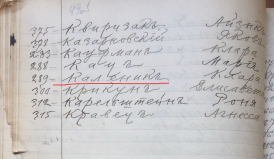 375 - Квиризакъ Айзикъ
373 - Казарновскій Яковъ
233 - Кауфманъ Клара
288 - Кацъ Марія
289 - Каленикъ Клара
300 - Крикунъ Елисавета
312 - Карельштейнъ Роня
315 - Кравецъ Агнесса